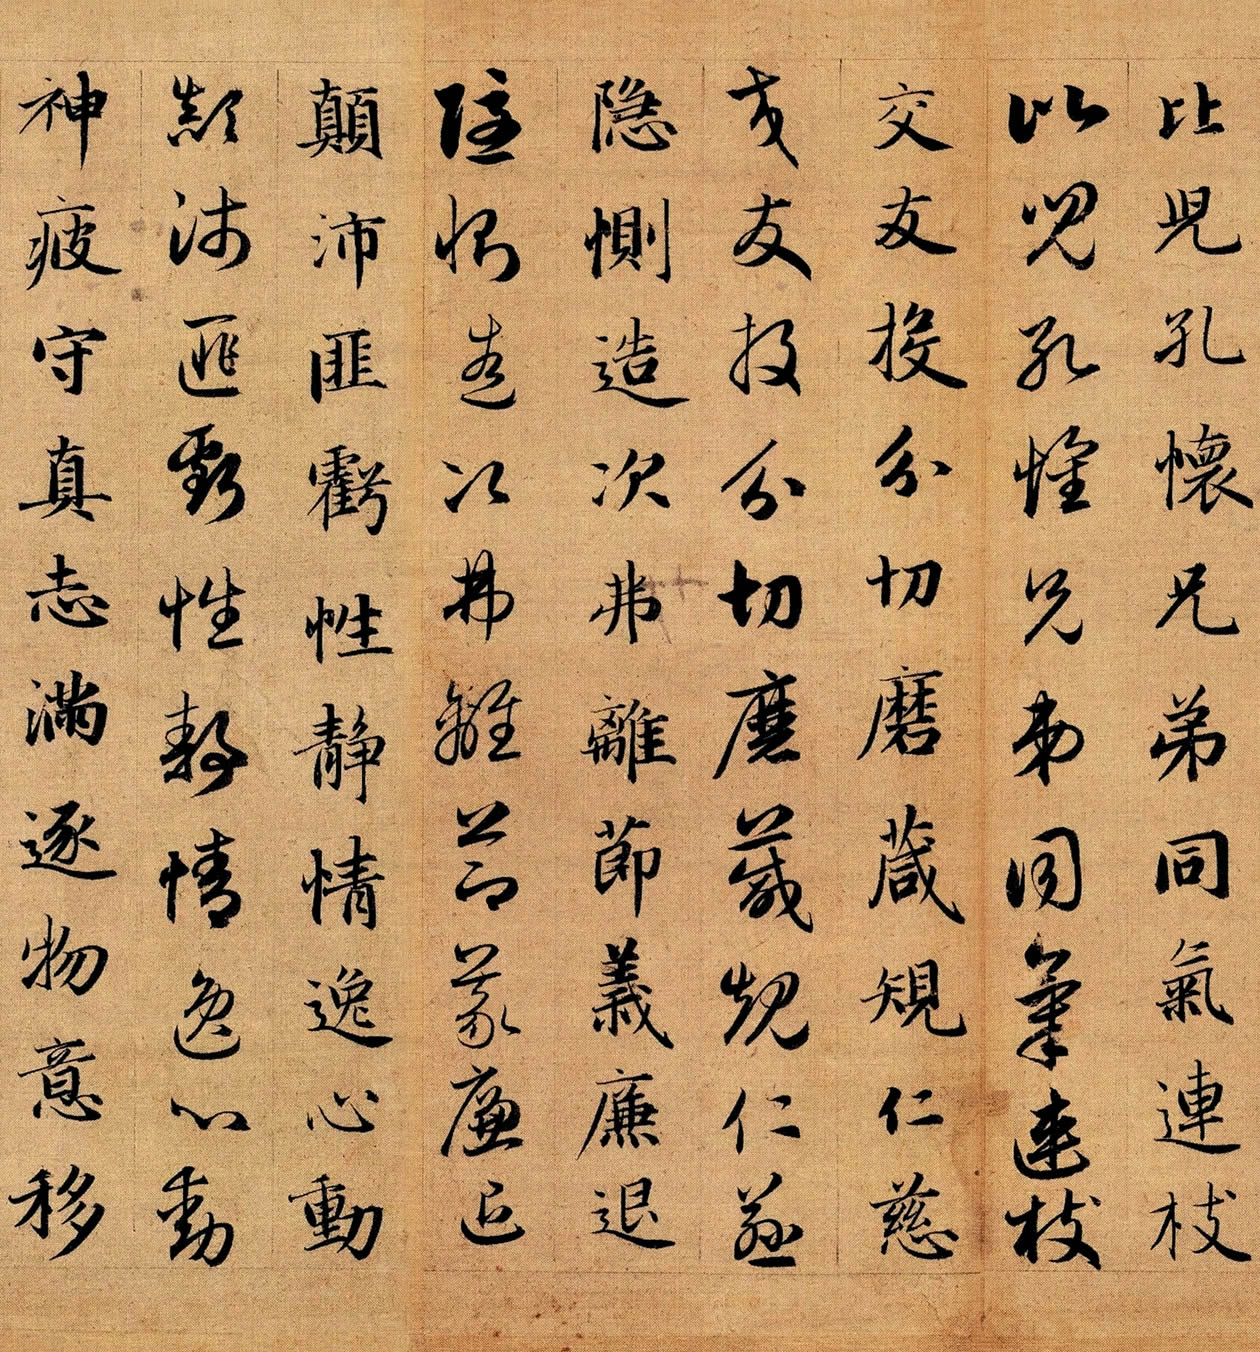 比兒孔懷兄弟同氣連枝
比兒孔懷兄弟同氣連枝
交友投分切磨葴規仁慈
交友投分切磨葴規仁慈
隱惻造次弗離節義廉退
隱惻造次弗離節義廉退
顛沛匪虧性靜情逸心動
顛沛匪虧性靜情逸心動
神疲守真志滿逐物意移